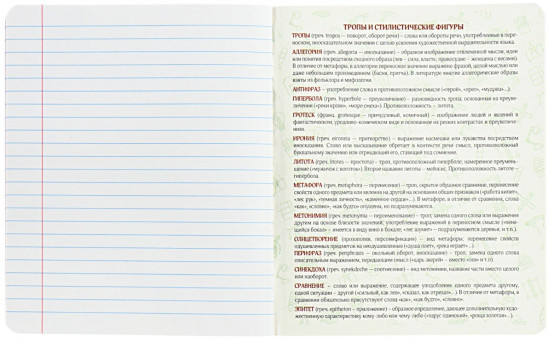 ТРОПЫ И СТИЛИСТИЧЕСКИЕ ФИГУРЫ
ТРОПЫ (греч. tropos — поворот, оборот речи) – слова или обороты речи, употребленные в пере-
носном, иносказательном значении с целью усиления художественной выразительности языка.
АЛЛЕГОРИЯ (греч. allegoria — иносказание) – образное изображение отвлеченной мысли, идеи
или понятия посредством сходного образа (лев – сила, власть; правосудие – женщина с весами)
В отличие от метафоры, в аллегории переносное значение выражено фразой, целой мыслью или
даже небольшим произведением (басня, притча). В литературе многие аллегорические образы
взяты из фольклора и мифологии.
АНТИФРАЗ – употребление слова в противоположном смысле («герой», «орел», «мудрец»...).
ГИПЕРБОЛА (греч. hyperbole — преувеличение) – разновидность тропа, основанная на преуве-
личении («реки крови», «море смеха»). Противоположность – литота.
ГРОТЕСК (франц. grotesque – причудливый, комичный) – изображение людей и явлений в
фантастическом, уродливо-комическом виде и основанное на резких контрастах и преувеличе-
ниях.
ИРОНИЯ (греч. eironeia — притворство) – выражение насмешки или лукавства посредством
иносказания. Слово или высказывание обретает в контексте речи смысл, противоположный
буквальному значению или отрицающий его, ставящий под сомнение.
ЛИТОТА (греч. litotes – простота) – троп, противоположный гиперболе; намеренное преумень-
шение («мужичок с ноготок»). Второе название литоты – мейосис. Противоположность литоте –
гипербола.
МЕТАФОРА (греч. metaphora — перенесение) – троп, скрытое образное сравнение, перенесение
свойств одного предмета или явления на другой на основании общих признаков («работа кипит»,
«лес рук», «темная личность», «каменное сердце»...). В метафоре, в отличие от сравнения, слова
«как», «словно», «как будто» опущены, но подразумеваются.
МЕТОНИМИЯ (греч. metonymia – переименование) – троп; замена одного слова или выражения
другим на основе близости значений; употребление выражений в переносном смысле («пеня-
щийся бокал» — имеется в виду вино в бокале; «лес шумит» – подразумеваются деревья; и т.п.).
ОЛИЦЕТВОРЕНИЕ (прозопопея, персонификация) – вид метафоры; перенесение свойств
одушевленных предметов на неодушевленные («душа поет», «река играет»...).
ПЕРИФРАЗ (греч. periphrasis — окольный оборот, иносказание) – троп, замена одного слова
описательным выражением, передающим смысл («царь зверей» – вместо «лев» и т.п).
СИНЕКДОХА (греч. synekdoche — соотнесение) – вид метонимии, название части вместо целого)
или наоборот.
СРАВНЕНИЕ – слово или выражение, содержащее уподобление одного предмета другому,
одной ситуации – другой («сильный, как лев», «сказал, как отрезал»...). В отличие от метафоры, в
сравнении обязательно присутствуют слова «как», «как будто», «словно».
ЭПИТЕТ (греч. epitheton – приложение) – образное определение, дающее дополнительную худо-
жественную характеристику кому-либо или чему-либо («парус одинокий», «роща золотая»...).